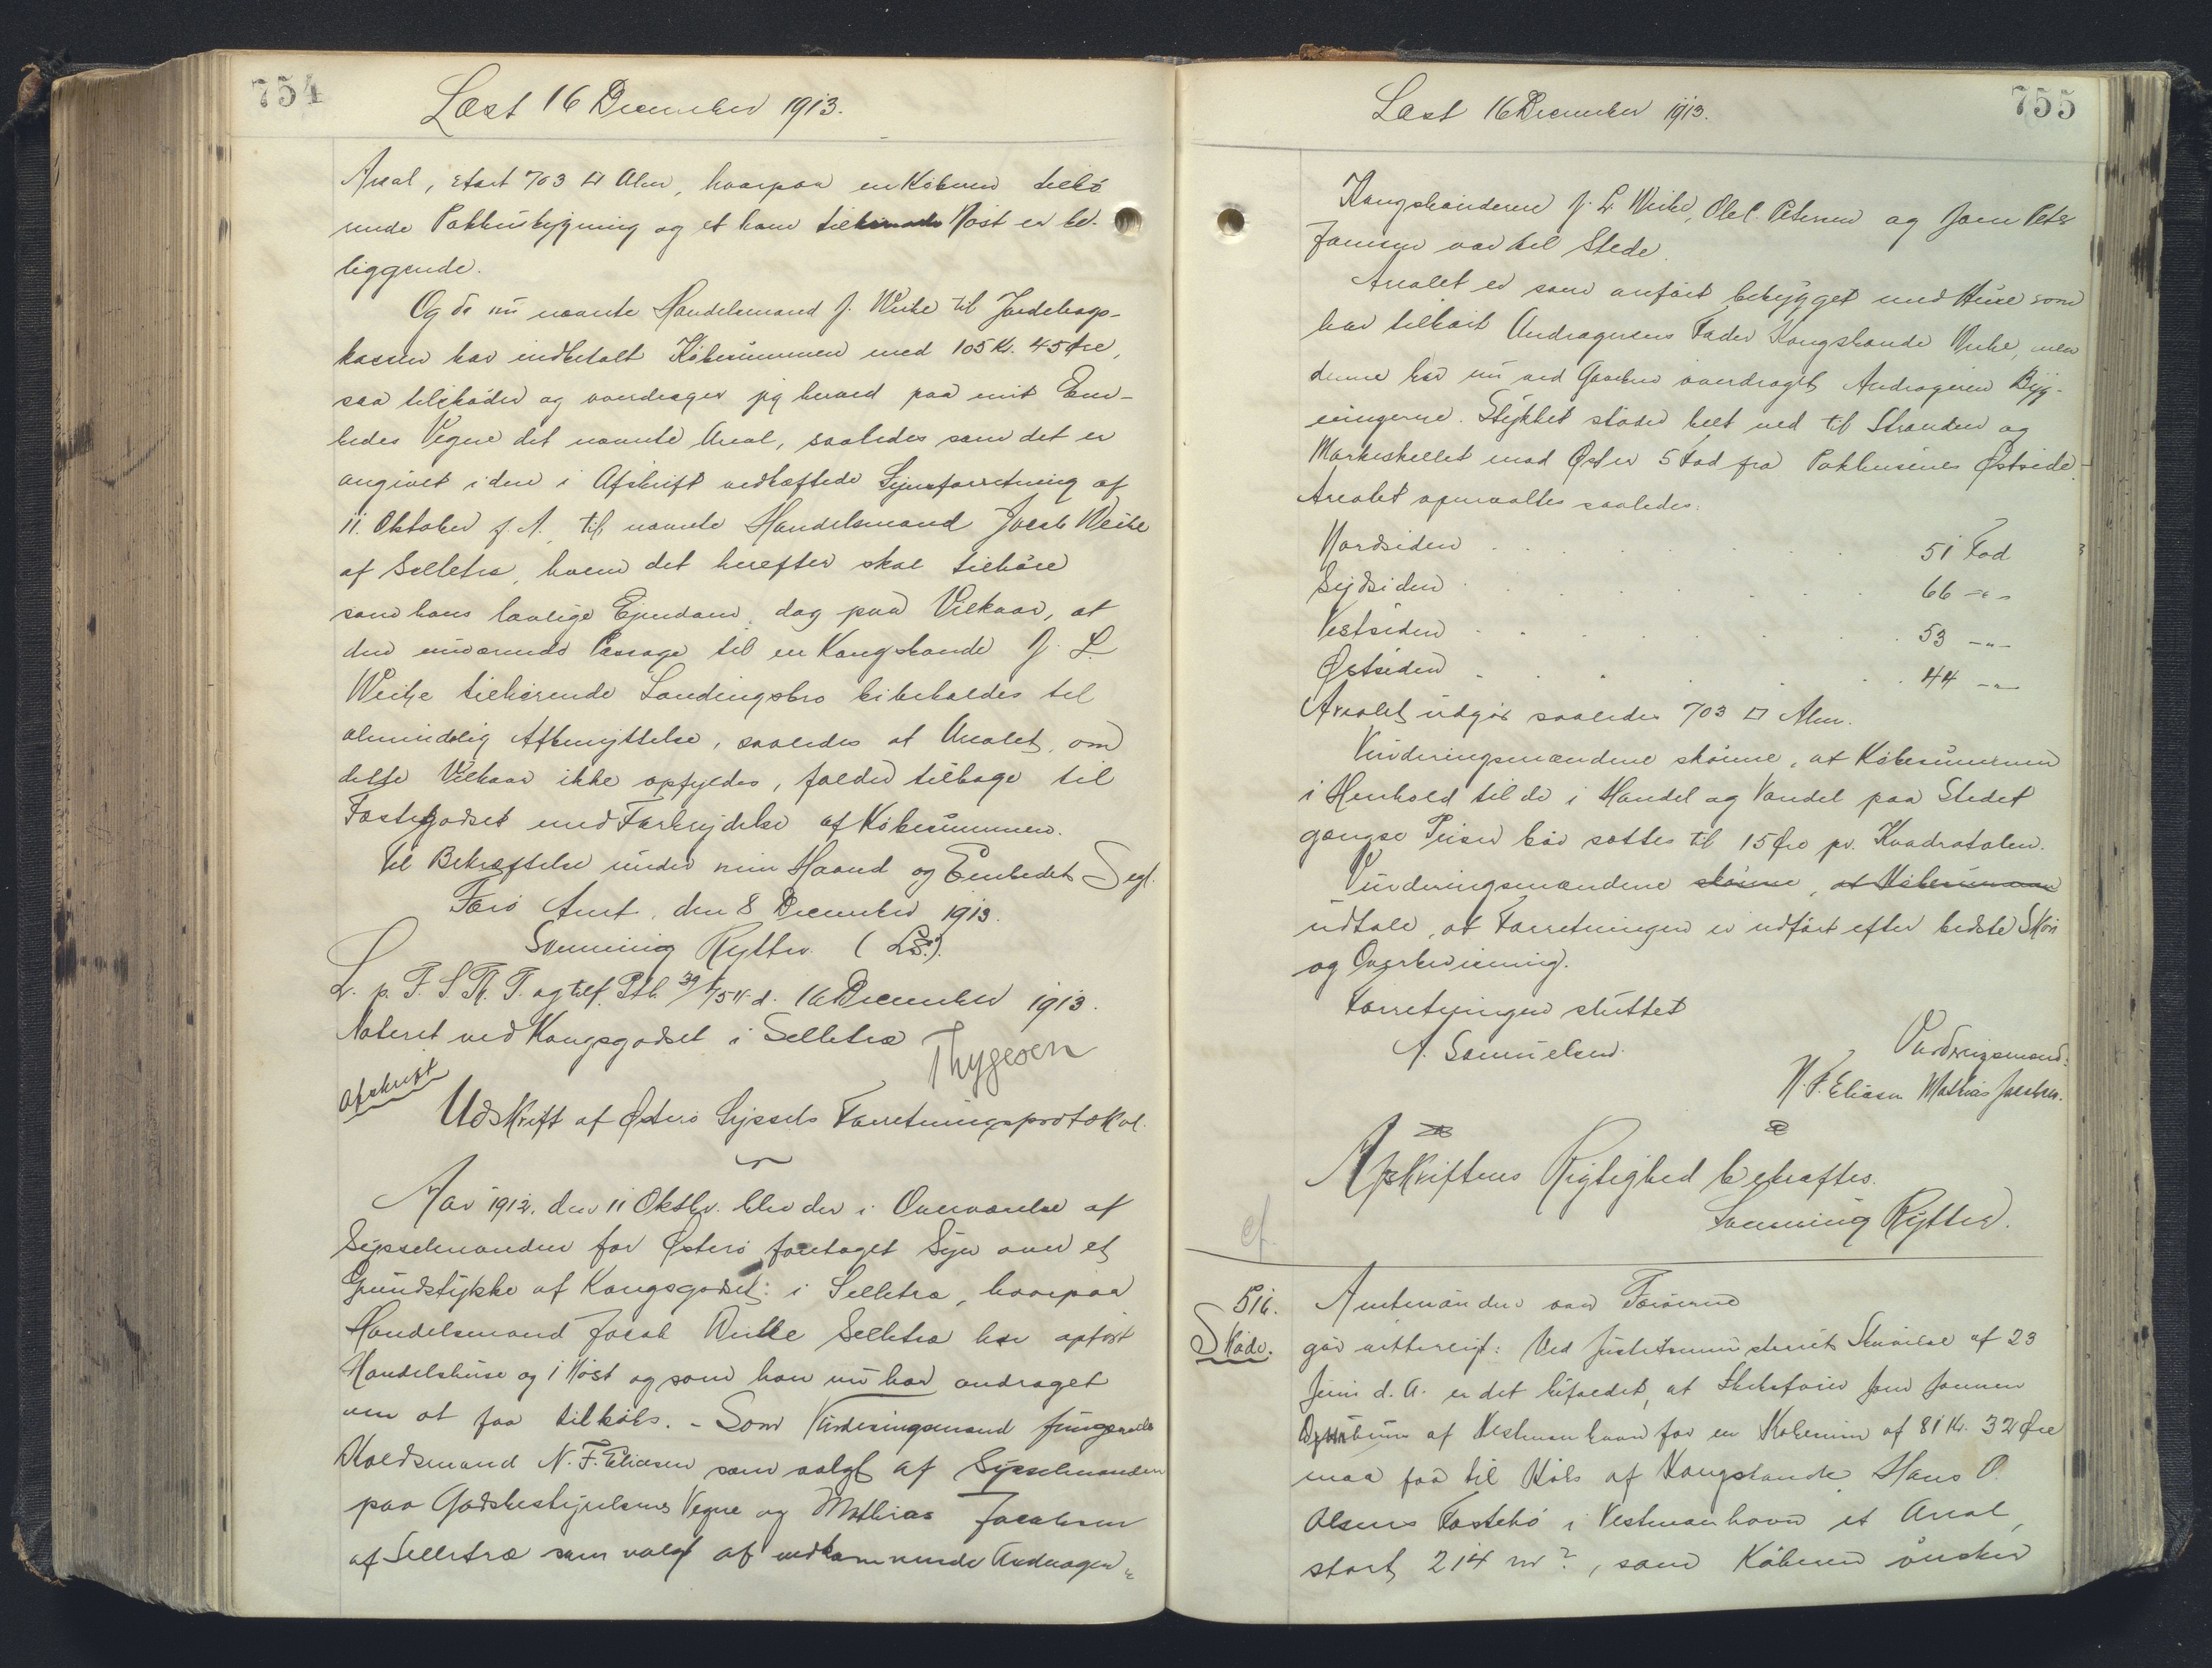 754
Læst 16 December 1913.
Areal, stort 703 □ Alen, hvorpaa en Køberen tilhø
rende Pakhusbygning og et ham tilhørende Nøst er be-
liggende.
Og da nu nævnte Handelsmand J. Weihe til Jordebogs-
kassen har indbetalt Købesummen med 105 Kr. 45 Øre,
saa tilskøder og overdrager jeg herved paa mit Em-
bedes Vegne det nævnte Areal, saaledes som det er
angivet i den i Afskrift vedhæftede Synsforretning af
11. Oktober f. A. til nævnte Handelsmand Jacob Weihe
af Selletræ, hvem det herefter skal tilhøre
som hans lovlige Ejendom, dog paa Vilkaar, at
den nuværende Passage til en Kongsbonde J. L.
Weihe tilhørende Landingsbro bibeholdes til
almindelig Afbenyttelse, saaledes at Arealet, om
dette Vilkaar ikke opfyldes, falder tilbage til
Fæstegodset med Forbrydelse af Købesummen.
Til Bekræftelse under min Haand og Embedets Segl.
Færø Amt, den 8 December 1913.
Svenning Rytter (L.S.).
L. p. F. S. Th. T. og tilf. Ptb. 39/754 d. 16 December 1913.
Noteret ved Kongsgodset i Selletræ
Thygesen
Afskrift
Udskrift af Østerø Syssels Forretningsprotokol.
Aar 1912, den 11 Oktbr. blev der i Overværelse af
Sysselmanden for Østerø foretaget Syn over et
Grundstykke af Kongsgodset i Selletræ, hvorpaa
Handelsmand Jacob Weihe Selletræ har opført
Handelshuse og 1 Nøst og som han nu har andraget
om at faa tilkøbs. - Som Vurderingsmænd fungerede
Voldsmand N. F. Eliasen som valgt af Sysselmanden
paa Godsbestyrelsens Vegne og Mathias Jacobsen
af Selletræ som valgt af vedkommende Andrager.
755
Læst 16 December 1913.
Kongsbønderne J. L. Weihe, Olel. Petersen og Joen Peter
Joensen var til Stede.
Arealet er som anført bebygget med Huse som
har tilhørt Andragerens Fader Kongsbonde Weihe, men
denne har nu ved Gavebrev overdraget Andrageren Byg-
ningerne. Stykket støder helt ned til Stranden og
Markeskellet mod Øster 5 Fod fra Pakhusenes Østside.
Arealet opmaaltes saaledes:
Nordsiden . . . . . . 51 Fod
Sydsiden . . . . . . 66 -"-
Vestsiden . . . . . . 53 -"-
Østsiden . . . . . . 44 -"-
Arealet udgør saaledes 703 □ Alen.
Vurderingsmændene skønne, at Købesummen
i Henhold til de i Handel og Vandel paa Stedet
gængse Priser bør sættes til 15 Øre pr. Kvadratalen.
Vurderingsmændene skønne, at Købesummen
udtale, at Forretningen er udført efter bedste Skøn
og Overbevisning.
Forretningen sluttet
A. Samuelsen.
Vurderingsmænd:
N. F. Eliasen Mathias Jacobsen.
Afskriftens Rigtighed bekræftes.
Svenning Rytter.
cf
516.
Skøde.
Amtmanden over Færøerne
gør vitterligt: Ved Justitsministeriets Skrivelse af 23
Juni d. A. er det bifaldet, at Skibsfører Joen Joensen
af Vestmanhavn for en Købesum af 81 Kr. 32 Øre
maa faa til Købs af Kongsbonde Hans O.
Olsens Fæstebø i Vestmanhavn et Areal,
stort 214 m², som Køberen ønsker